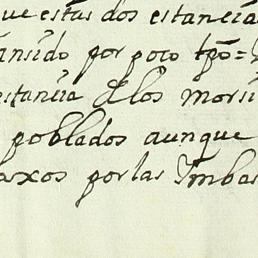 que estas dos estancia
ansido por poco tpo=
estancia de los morsi
poblados aunque
axos por las Imbas